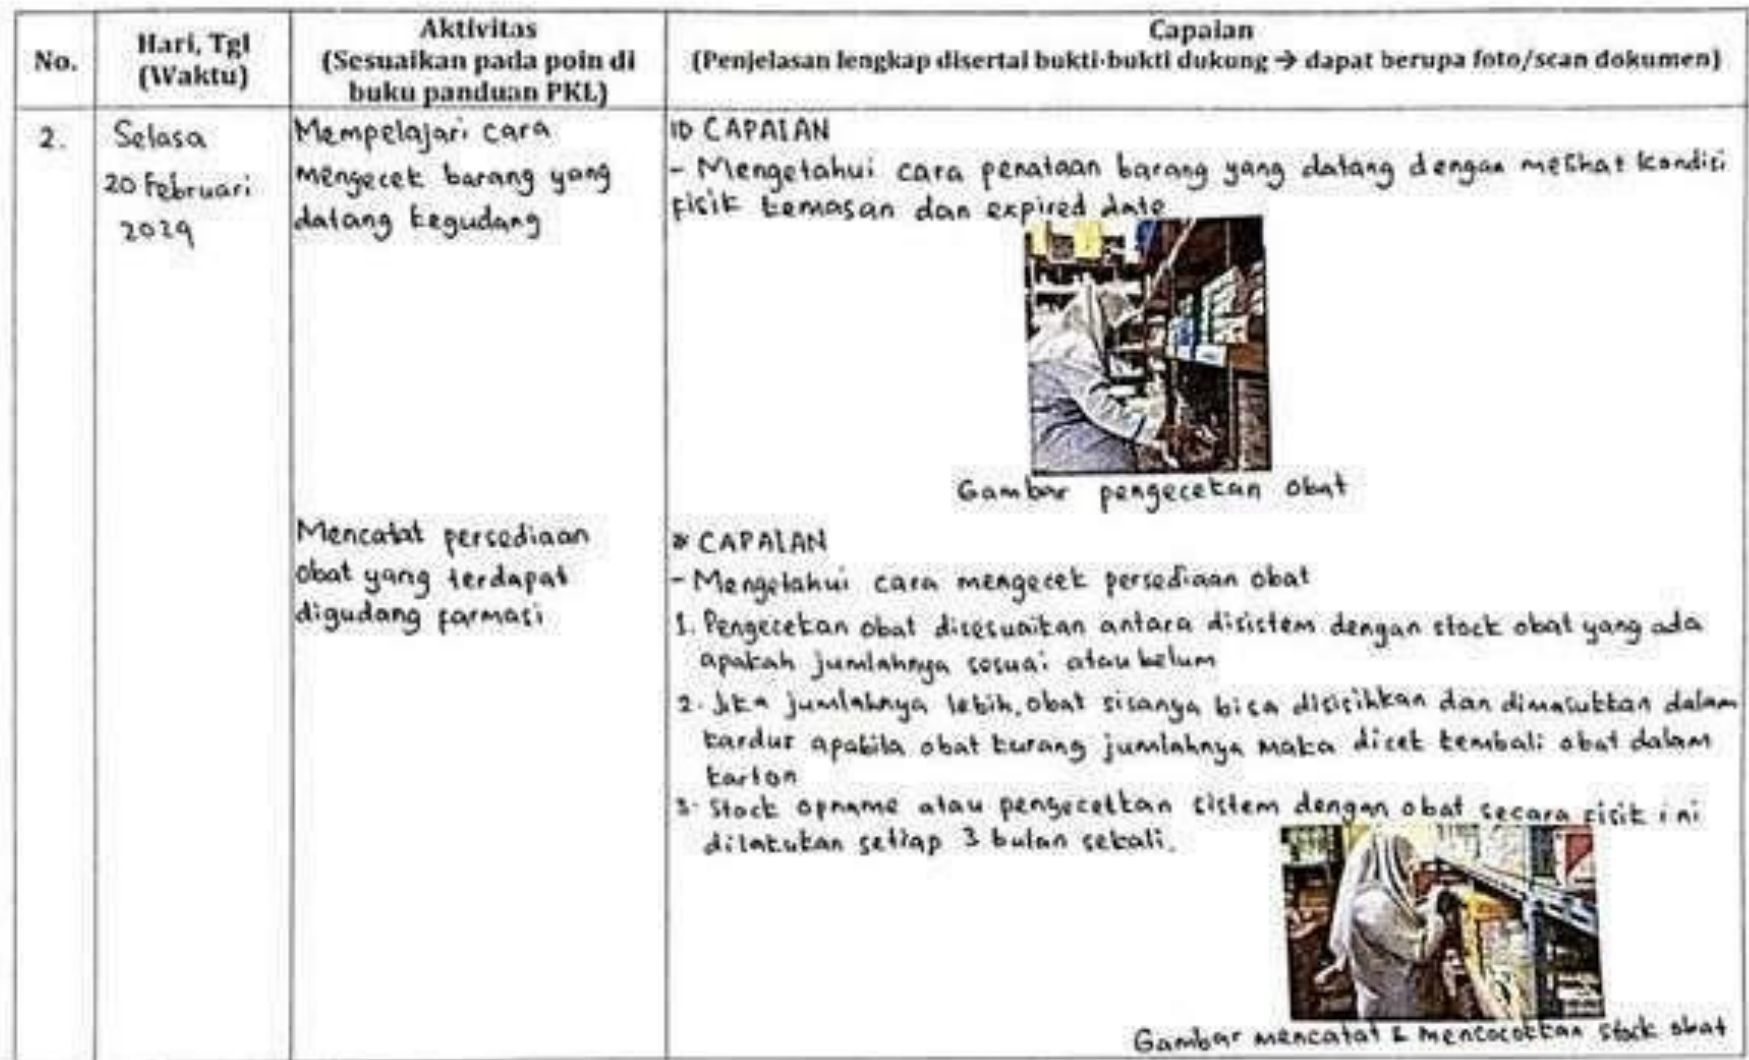 No.
Hari, Tgl
(Waktu)
Aktivitas
(Sesuaikan pada poin di
buku panduan PKL)
Capaian
(Penjelasan lengkap disertai bukti-bukti dukung → dapat berupa foto/scan dokumen)
2.
Selasa
20 Februari
2024
Mempelajari cara
mengecek barang yang
datang kegudang
CAPAIAN
- Mengetahui cara penataan barang yang datang dengan melihat kondisi
fisik kemasan dan expired date
Gambar pengecekan obat
Mencatat persediaan
obat yang terdapat
digudang farmasi
CAPAIAN
- Mengetahui cara mengecek persediaan obat
1. Pengecekan obat disesuaikan antara disistem dengan stock obat yang ada
apakah jumlahnya sesuai atau belum
2. Jika jumlahnya lebih, obat sisanya bisa disisihkan dan dimasukkan dalam
kardus apabila obat kurang jumlahnya maka dicek kembali obat dalam
karton
3. Stock opname atau pengecekkan sistem dengan obat secara fisik ini
dilakukan setiap 3 bulan sekali.
Gambar mencatat & mencocokkan stock obat